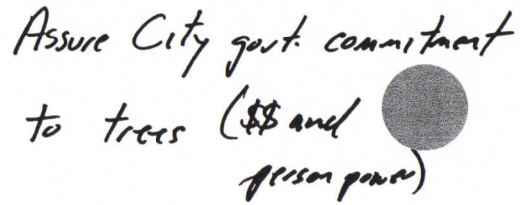 Assure City govt. commitment
to trees ($$ and
person power)